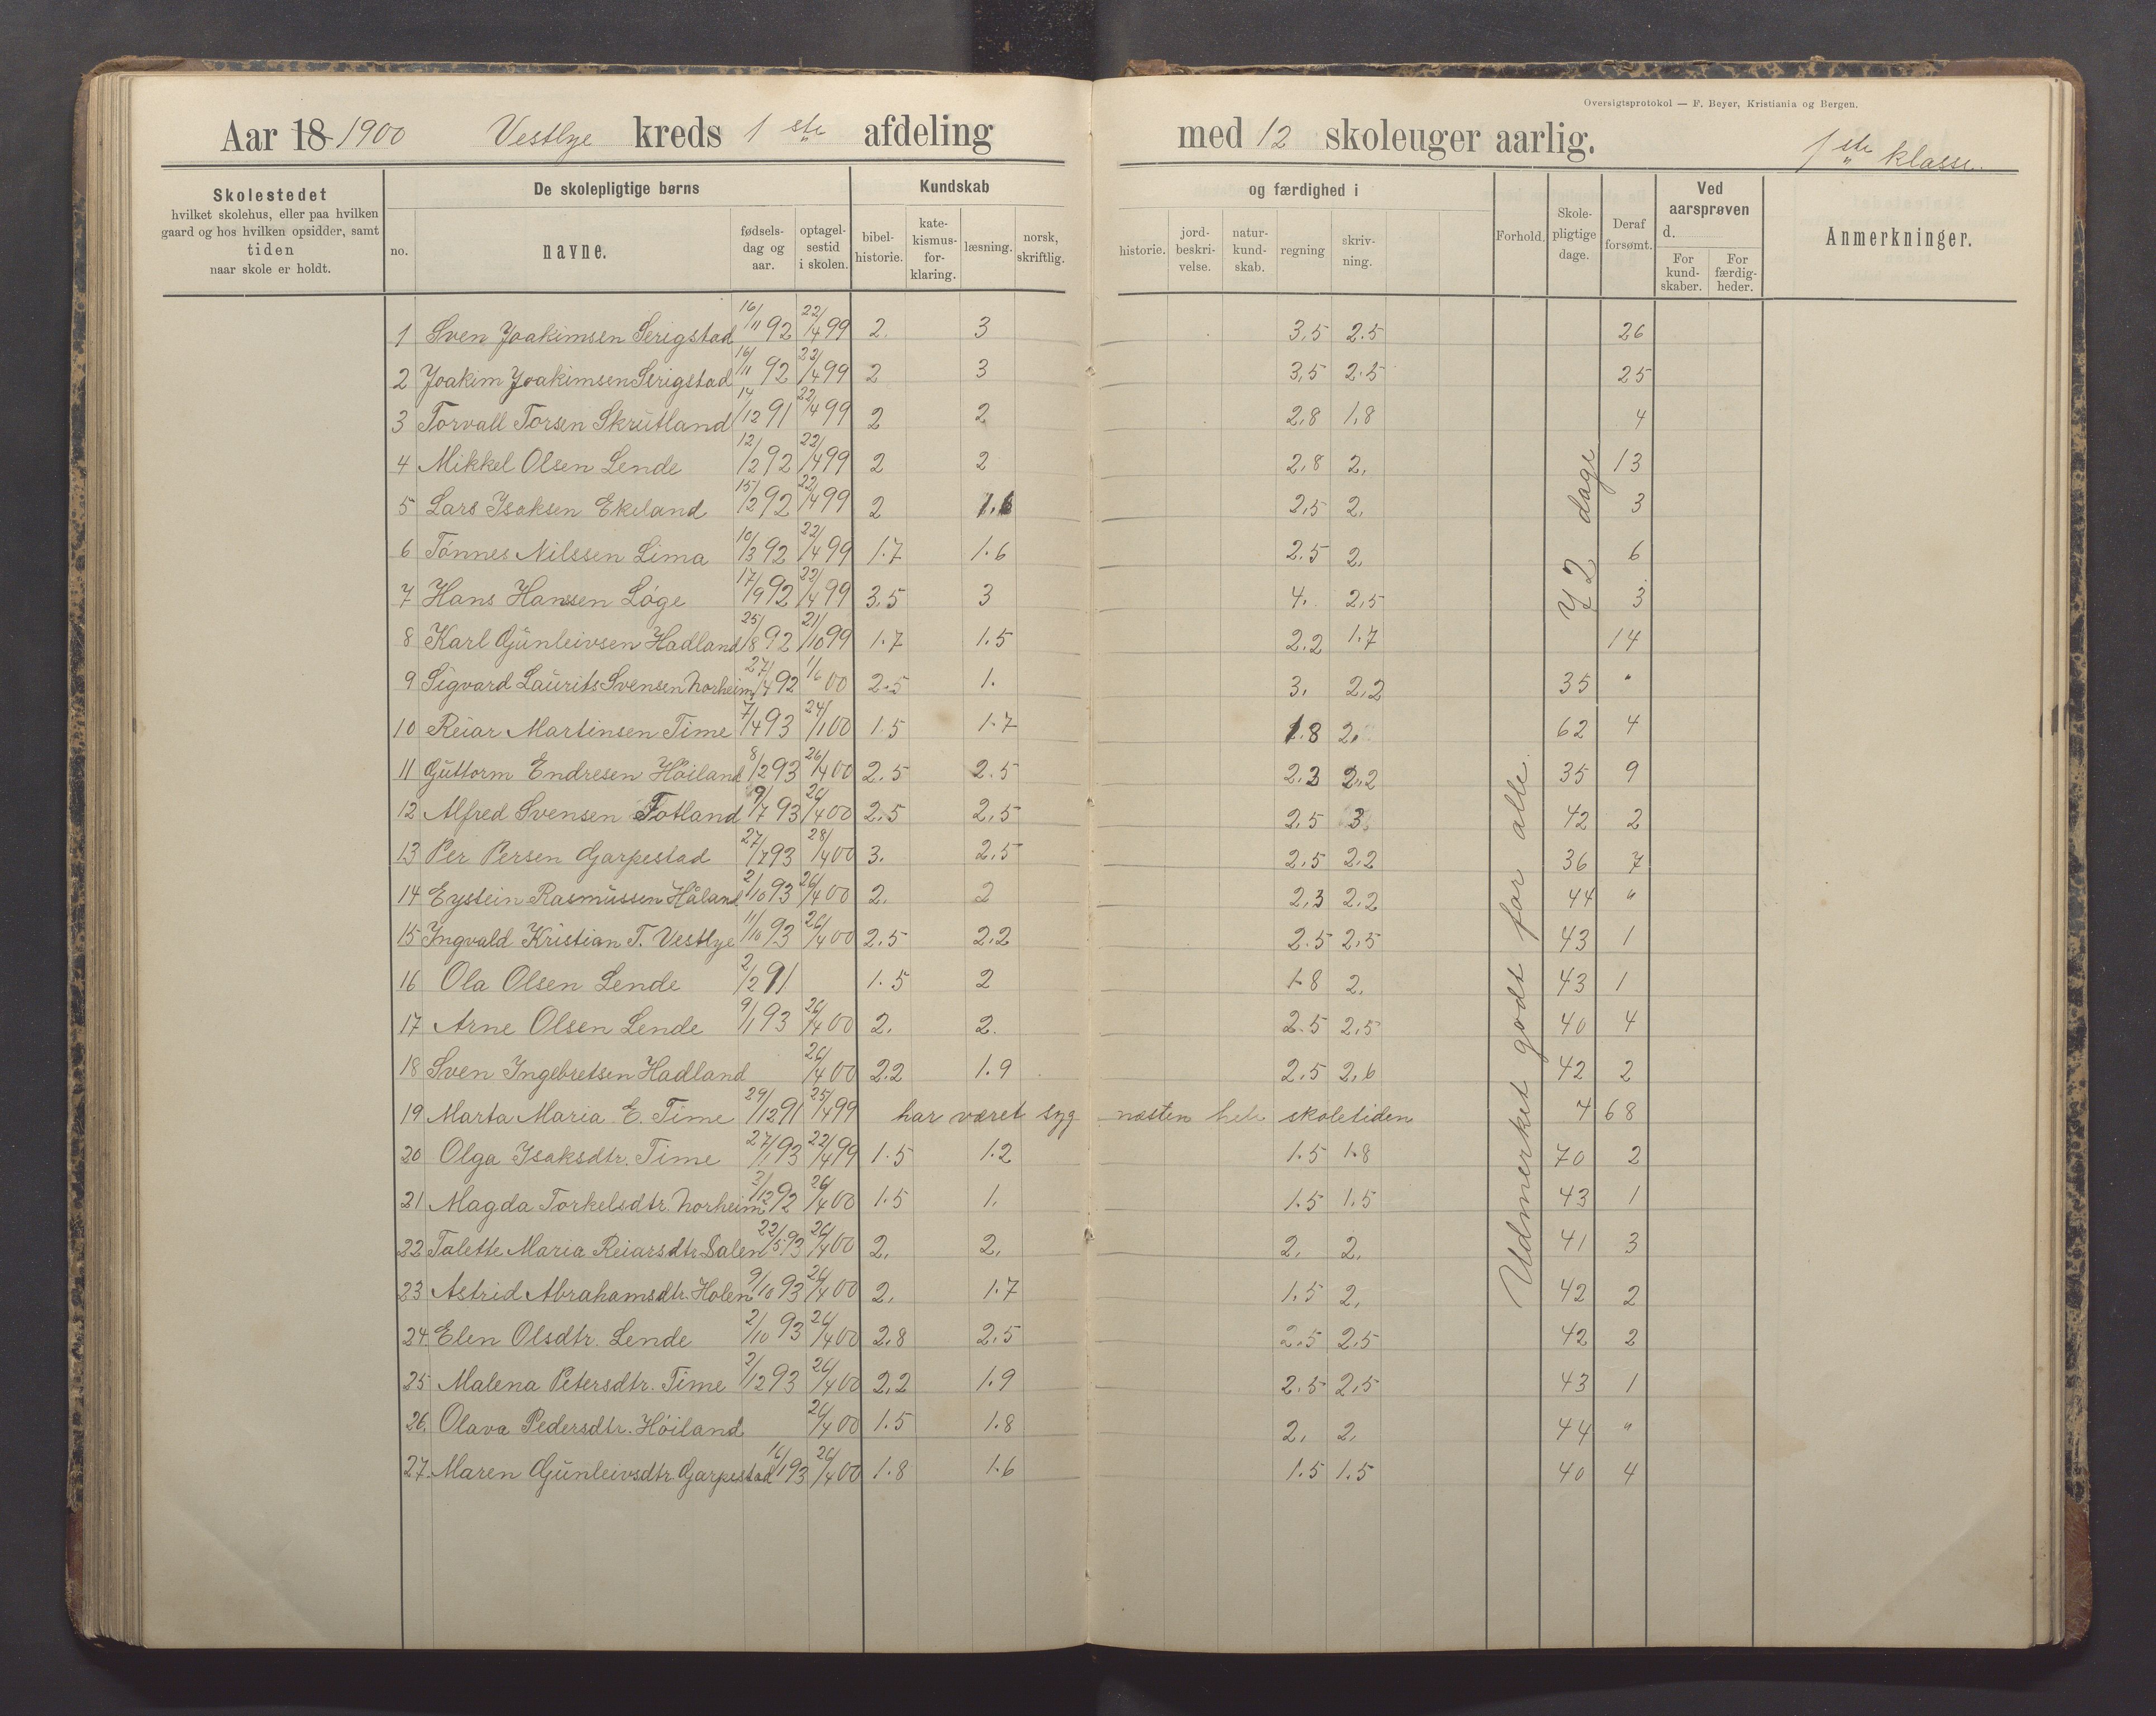 Oversigtsprotokol — F. Beyer, Kristiania og Bergen.
Aar 18 1900 Vestlye kreds 1 ste afdeling med 12 skoleuger aarlig. 1 ste klasse.
Skolestedet
hvilket skolehus, eller paa hvilken
gaard og hos hvilken opsidder, samt
tiden
naar skole er holdt.
De skolepligtige børns
no. navne. fødsels-dag og aar. optagel-sestid i skolen.
Kundskab og færdighed i
bibel-historie. kate-kismus-for-klaring. læsning. norsk, skriftlig. historie. jord-beskri-velse. natur-kund-skab. regning skriv-ning.
Forhold. Skole-pligtige dage. Deraf forsømt. Ved aarsprøven d. For kund-skaber. For færdig-heder. Anmerkninger.
1 Sven Joakimsen Serigstad 16/11 92 22/4 99 2. 3 3,5 2.5 26
2 Joakim Joakimsen Serigstad 16/11 92 22/4 99 2 3 3,5 2.5 25
3 Torvall Torsen Skrutland 14/12 91 22/4 99 2 2 2,8 1,8 4
4 Mikkel Olsen Lende 12/2 92 22/4 99 2 2 2,8 2. 13
5 Lars Isaksen Ekeland 15/2 92 22/4 99 2 2,5 2. 3
6 Tónnes Nilssen Lima 10/3 92 22/4 99 1.7 1.6 2.5 2. 6
7 Hans Hanssen Lóge 17/9 92 22/4 99 3,5 3 4. 2,5 3
8 Karl Gunleivsen Hadland 25/8 92 21/10 99 1.7 1.5 2.2 1.7 14
9 Sigvard Laurits Svensen Norheim 27/4 92 1/6 00 2.5 1. 3. 2,2 35 "
10 Reiar Martinsen Time 7/4 93 24/1 00 1.5 1.7 1.8 2. 62 4
11 Guttorm Endresen Hóiland 8/2 93 26/4 00 2.5 2.5 2.3 2.2 35 9
12 Alfred Svensen Fotland 9/7 93 26/4 00 2,5 2,5 2,5 3. 42 2
13 Per Persen Garpestad 27/7 93 28/4 00 3. 2,5 2,5 2,2 36 7
14 Eystein Rasmussen Håland 2/10 93 26/4 00 2. 2 2,3 2.2 44 "
15 Ingvald Kristian T. Vestlye 11/10 93 26/4 00 2.5 2.2 2.5 2,5 43 1
16 Ola Olsen Lende 2/2 91. 1.5 2 1.8 2. 43 1
17 Arne Olsen Lende 9/1 93 26/4 00 2. 2. 2.5 2,5 40 4
18 Sven Ingebretsen Hadland 26/4 00 2.2 1.9 2.5 2,6 42 2
19 Marta Maria E. Time 29/12 91 25/4 99 har været syg næsten hele skoletiden 4 68
20 Olga Isaksdtr. Time 27/1 93 22/4 99 1.5 1.2 1.5 1.8 70 2
21 Magda Torkelsdtr. Norheim 3/12 92 26/4 00 1.5 1. 1.5 1.5 43 1
22 Talette Maria Reiarsdtr. Salen 22/5 93 26/4 00 2. 2. 2. 2. 41 3
23 Astrid Abrahamsdtr. Holen 9/10 93 26/4 00 2. 1.7 1.5 2. 42 2
24. Elen Olsdtr. Lende 2/10 93 26/4 00 2,8 2.5 2.5 2.5 42 2
25 Malena Petersdtr. Time 2/12 93 26/4 00 2,2 1.9 2.5 2,5 43 1
26. Olava Pedersdtr. Hóiland 26/4 00 1.5 1.8 2. 2. 44 "
27. Maren Gunleivsdtr. Garpestad 16/1 93 26/4 00 1.8 1.6 1.5 1.5 40 4
72 dage
Udmerket godt for alle.